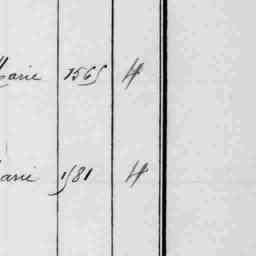 Marie 1565 4
Marie 1581 4